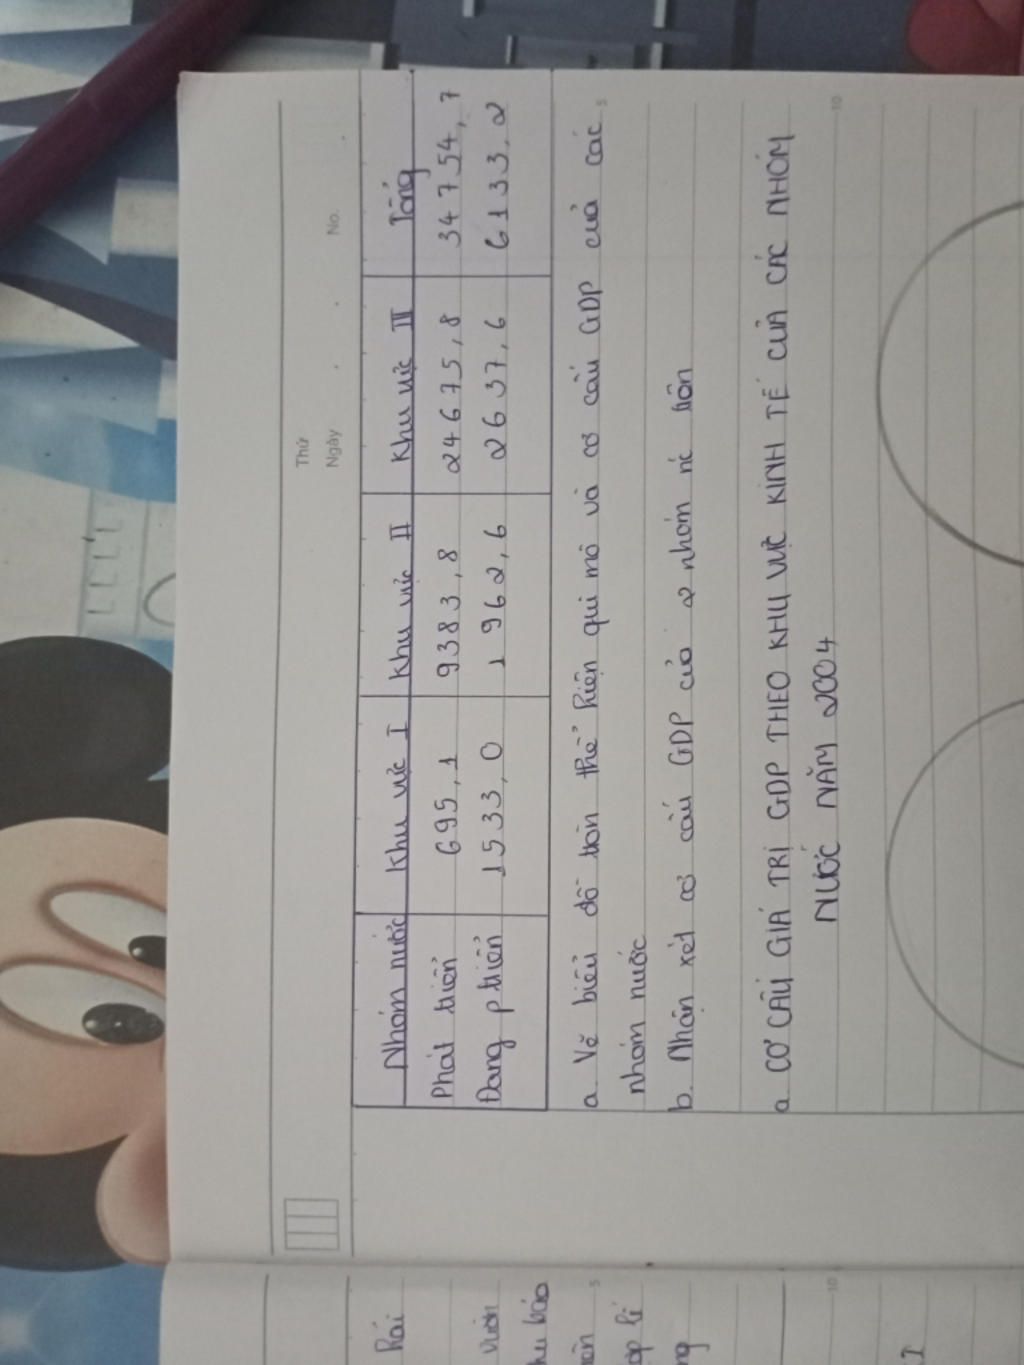 Thứ
Ngày . . No. .
Nhóm nước Khu vực I Khu vực II Khu vực III Tổng
Phát triển 695,1 9383,8 24675,8 34754,7
Đang ptriển 1533,0 1962,6 2637,6 6133,2
a. Vẽ biểu đồ tròn thể hiện qui mô và cơ cấu GDP của các
nhóm nước
b. Nhận xét cơ cấu GDP của 2 nhóm nc trên
a. CƠ CẤU GIÁ TRỊ GDP THEO KHU VỰC KINH TẾ CỦA CÁC NHÓM
NƯỚC NĂM 2004
5
10
5
10